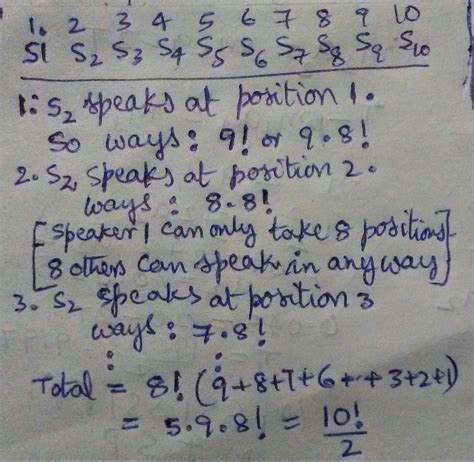 1. 2 3 4 5 6 7 8 9 10
S1 S2 S3 S4 S5 S6 S7 S8 S9 S10
1: S2 speaks at position 1.
So ways: 9! or 9.8!
2. S2 speaks at position 2.
ways : 8.8!
[Speaker 1 can only take 8 positions]
[8 others can speak in any way]
3. S2 speaks at position 3
ways : 7.8!
⋮ ⋮
Total = 8! (9+8+7+6+..+3+2+1)
= 5.9.8! = 10!/2